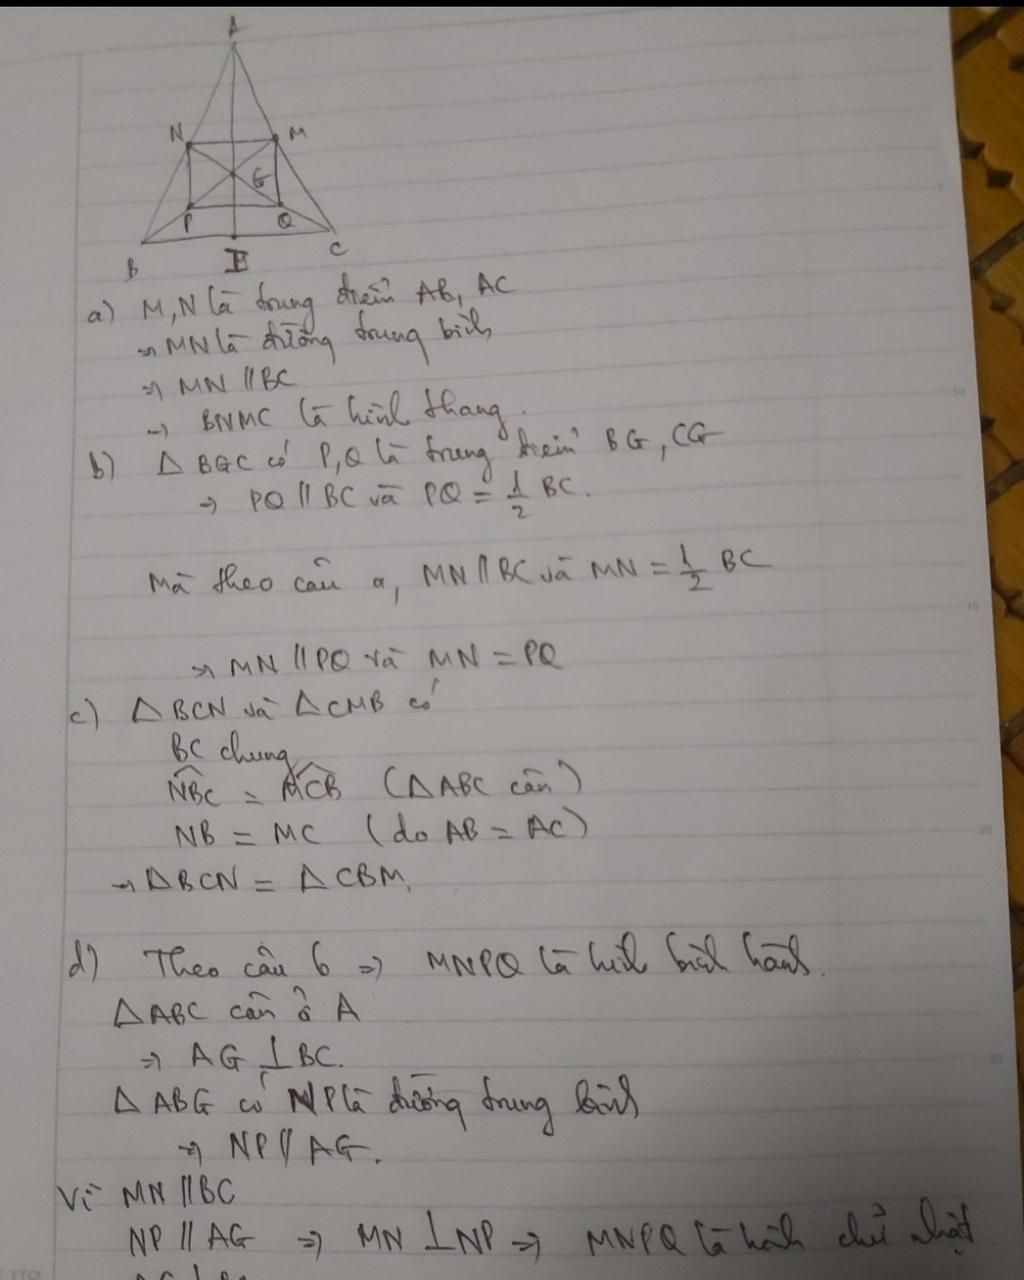 A
N
M
G
P
Q
B
E
C
a) M, N là trung điểm AB, AC
→ MN là đường trung bình
=> MN // BC
→ BNMC là hình thang.
b) △ BGC có P, Q là trung điểm BG, CG
=> PQ // BC và PQ = 1/2 BC.
Mà theo câu a, MN // BC và MN = 1/2 BC
=> MN // PQ và MN = PQ
c) △ BCN và △ CMB có
BC chung
NBC = MCB (△ ABC cân)
NB = MC (do AB = AC)
→ △ BCN = △ CBM.
d) Theo câu b => MNPQ là hình bình hành.
△ ABC cân ở A
=> AG ⊥ BC.
△ ABG có NP là đường trung bình
=> NP // AG.
Vì MN // BC
NP // AG => MN ⊥ NP => MNPQ là hình chữ nhật